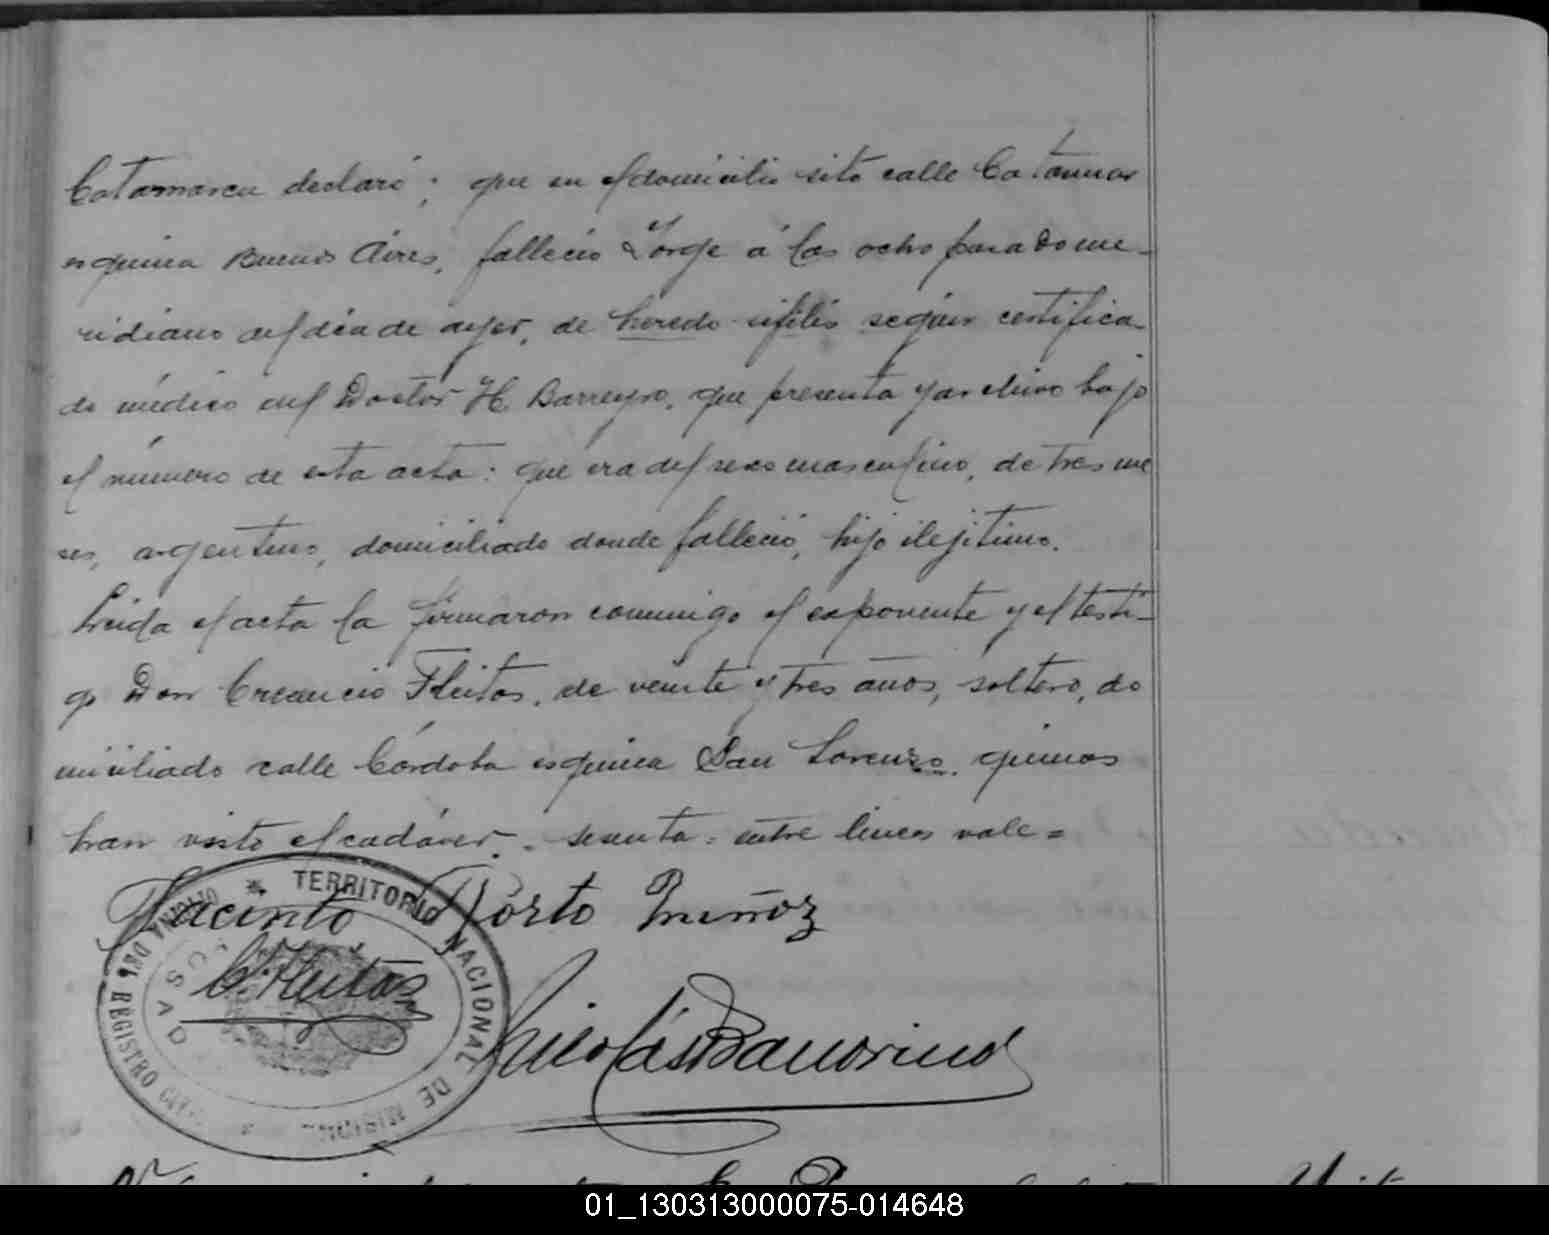 Catamarca declaró; que en el domicilio sito calle Catamar
esquina Buenos Aires, falleció Jorge á las ocho pasado me-
ridiano del día de ayer, de heredo sífilis según certifica-
do médico del Doctor H. Barreyro, que presenta y archivo bajo
el número de esta acta: que era del sexo masculino, de tres me
ses, argentino, domiciliado donde falleció, hijo ilejítimo.
Leida el acta la firmaron conmigo el exponente y el testi-
go Don Crecencio Fleitas, de veinte y tres años, soltero, do
miciliado calle Córdoba esquina San Lorenzo, quienes
han visto el cadáver. - sesenta: entre lineas vale =
Jacinto Porto Muñoz
C. Fleitas
Nicolás
OFICINA DEL REGISTRO CIVIL * TERRITORIO NACIONAL DE MISIONES
POSADAS
01_130313000075-014648